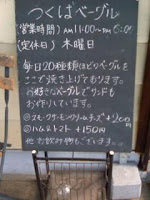 つくばベーグル
(営業時間) AM11:00~PM5:00
(定休日) 木曜日
毎日20種類ほどのベーグルを
ここで焼き上げております。
お好きなベーグルでサンドも
お作りしています。
◎スモークサーモンクリームチーズ +200円
◎ハムとトマト +150円
他 お飲み物もございます。